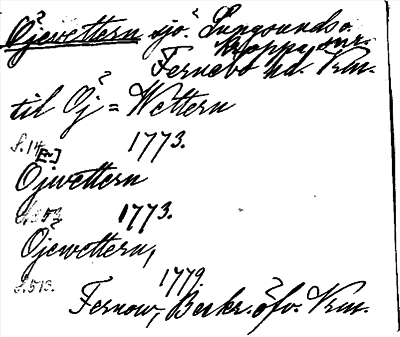 Öjevettern sjö. Lungsunds o.
Kroppa snr.
Fernebo hd. Vrm.
til Öj = Wettern
s. 14 1773.
Öjwettern
1773.
Öjewettern,
s. 513. 1779.
Fernow, Beskr. öfv. Vrm.